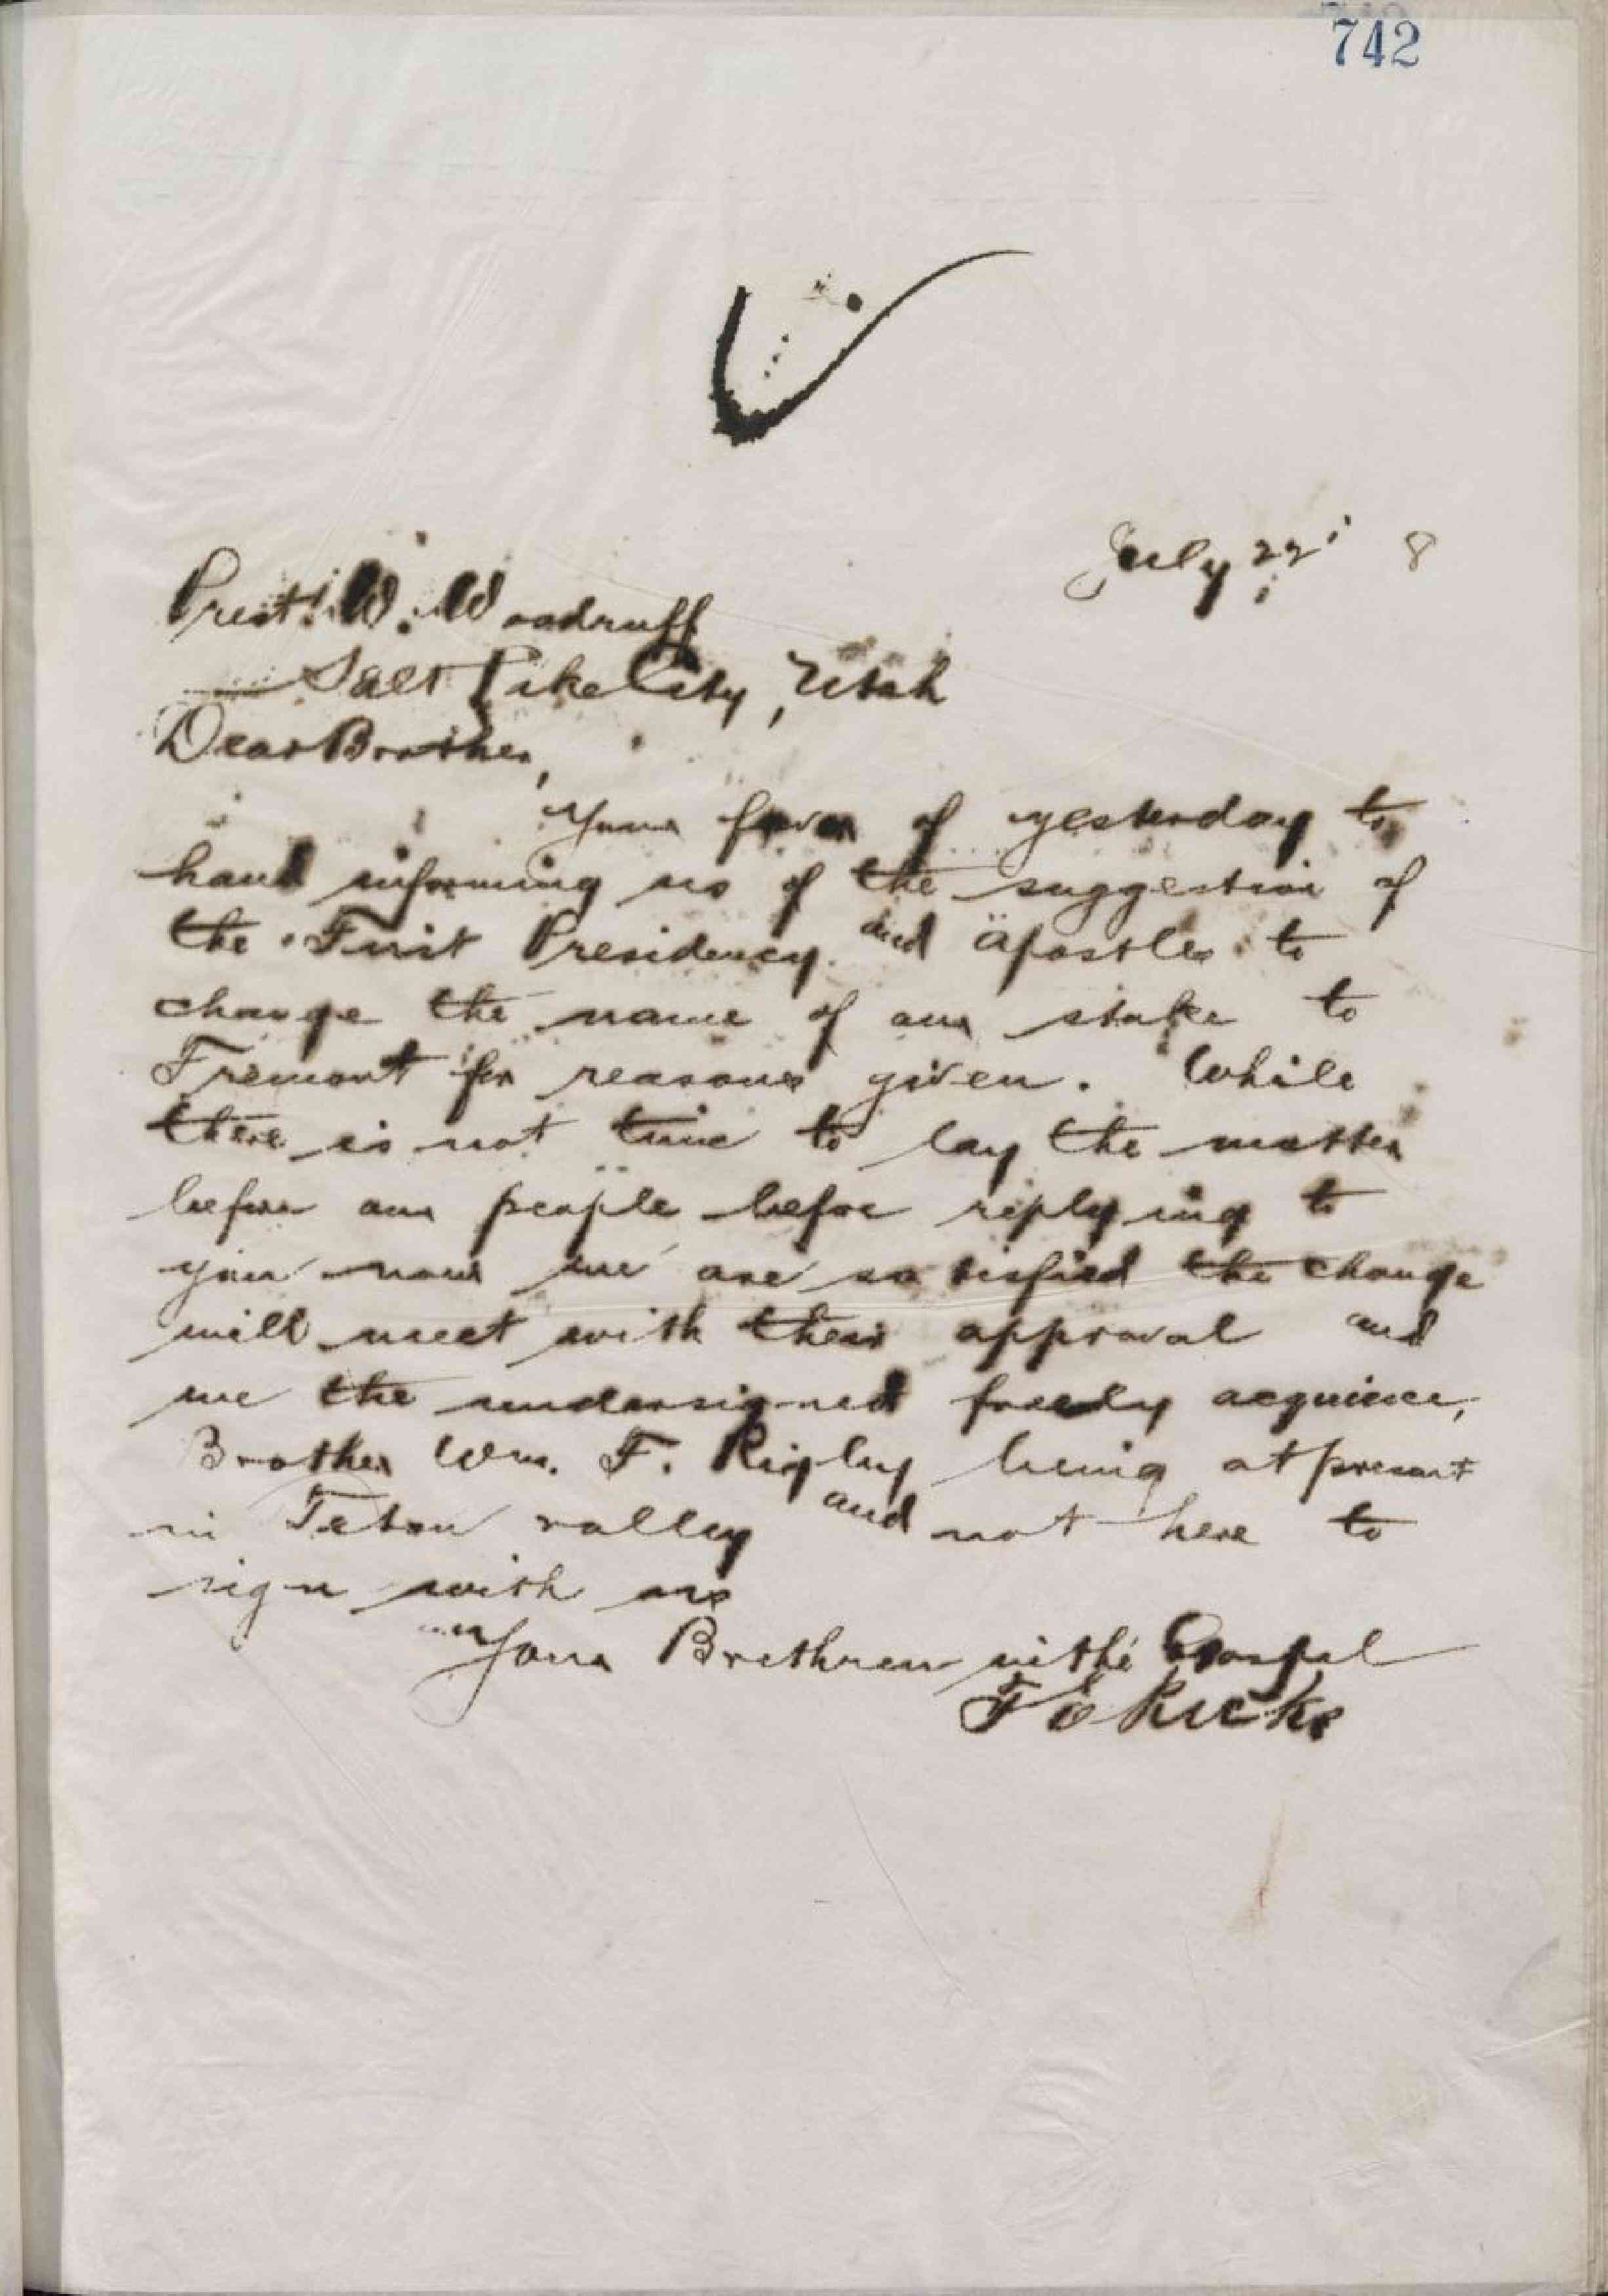 742
July 22 8
Prest. W. Woodruff
Salt Lake City, Utah
Dear Brother,
Your favor of yesterday to
hand informing us of the suggestion of
the First Presidency and Apostles to
change the name of our stake to
Fremont for reasons given. While
there is not time to lay the matter
before our people before replying to
you now we are satisfied the change
will meet with their approval and
we the undersigned freely acquiece,
Brother Wm. F. Rigby being at present
in Teton valley and not here to
sign with us
Your Brethren in the Gospel
T E Ricks